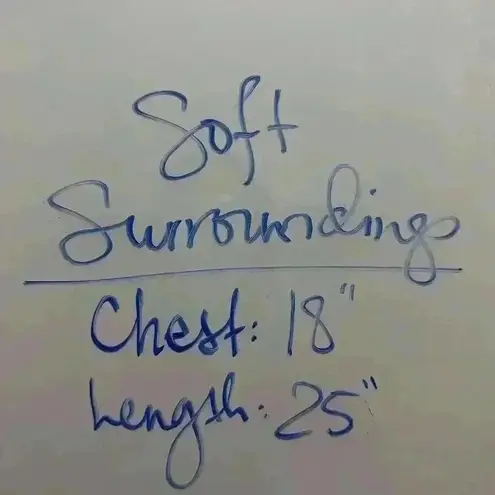 Soft
Surroundings
Chest: 18"
Length: 25"